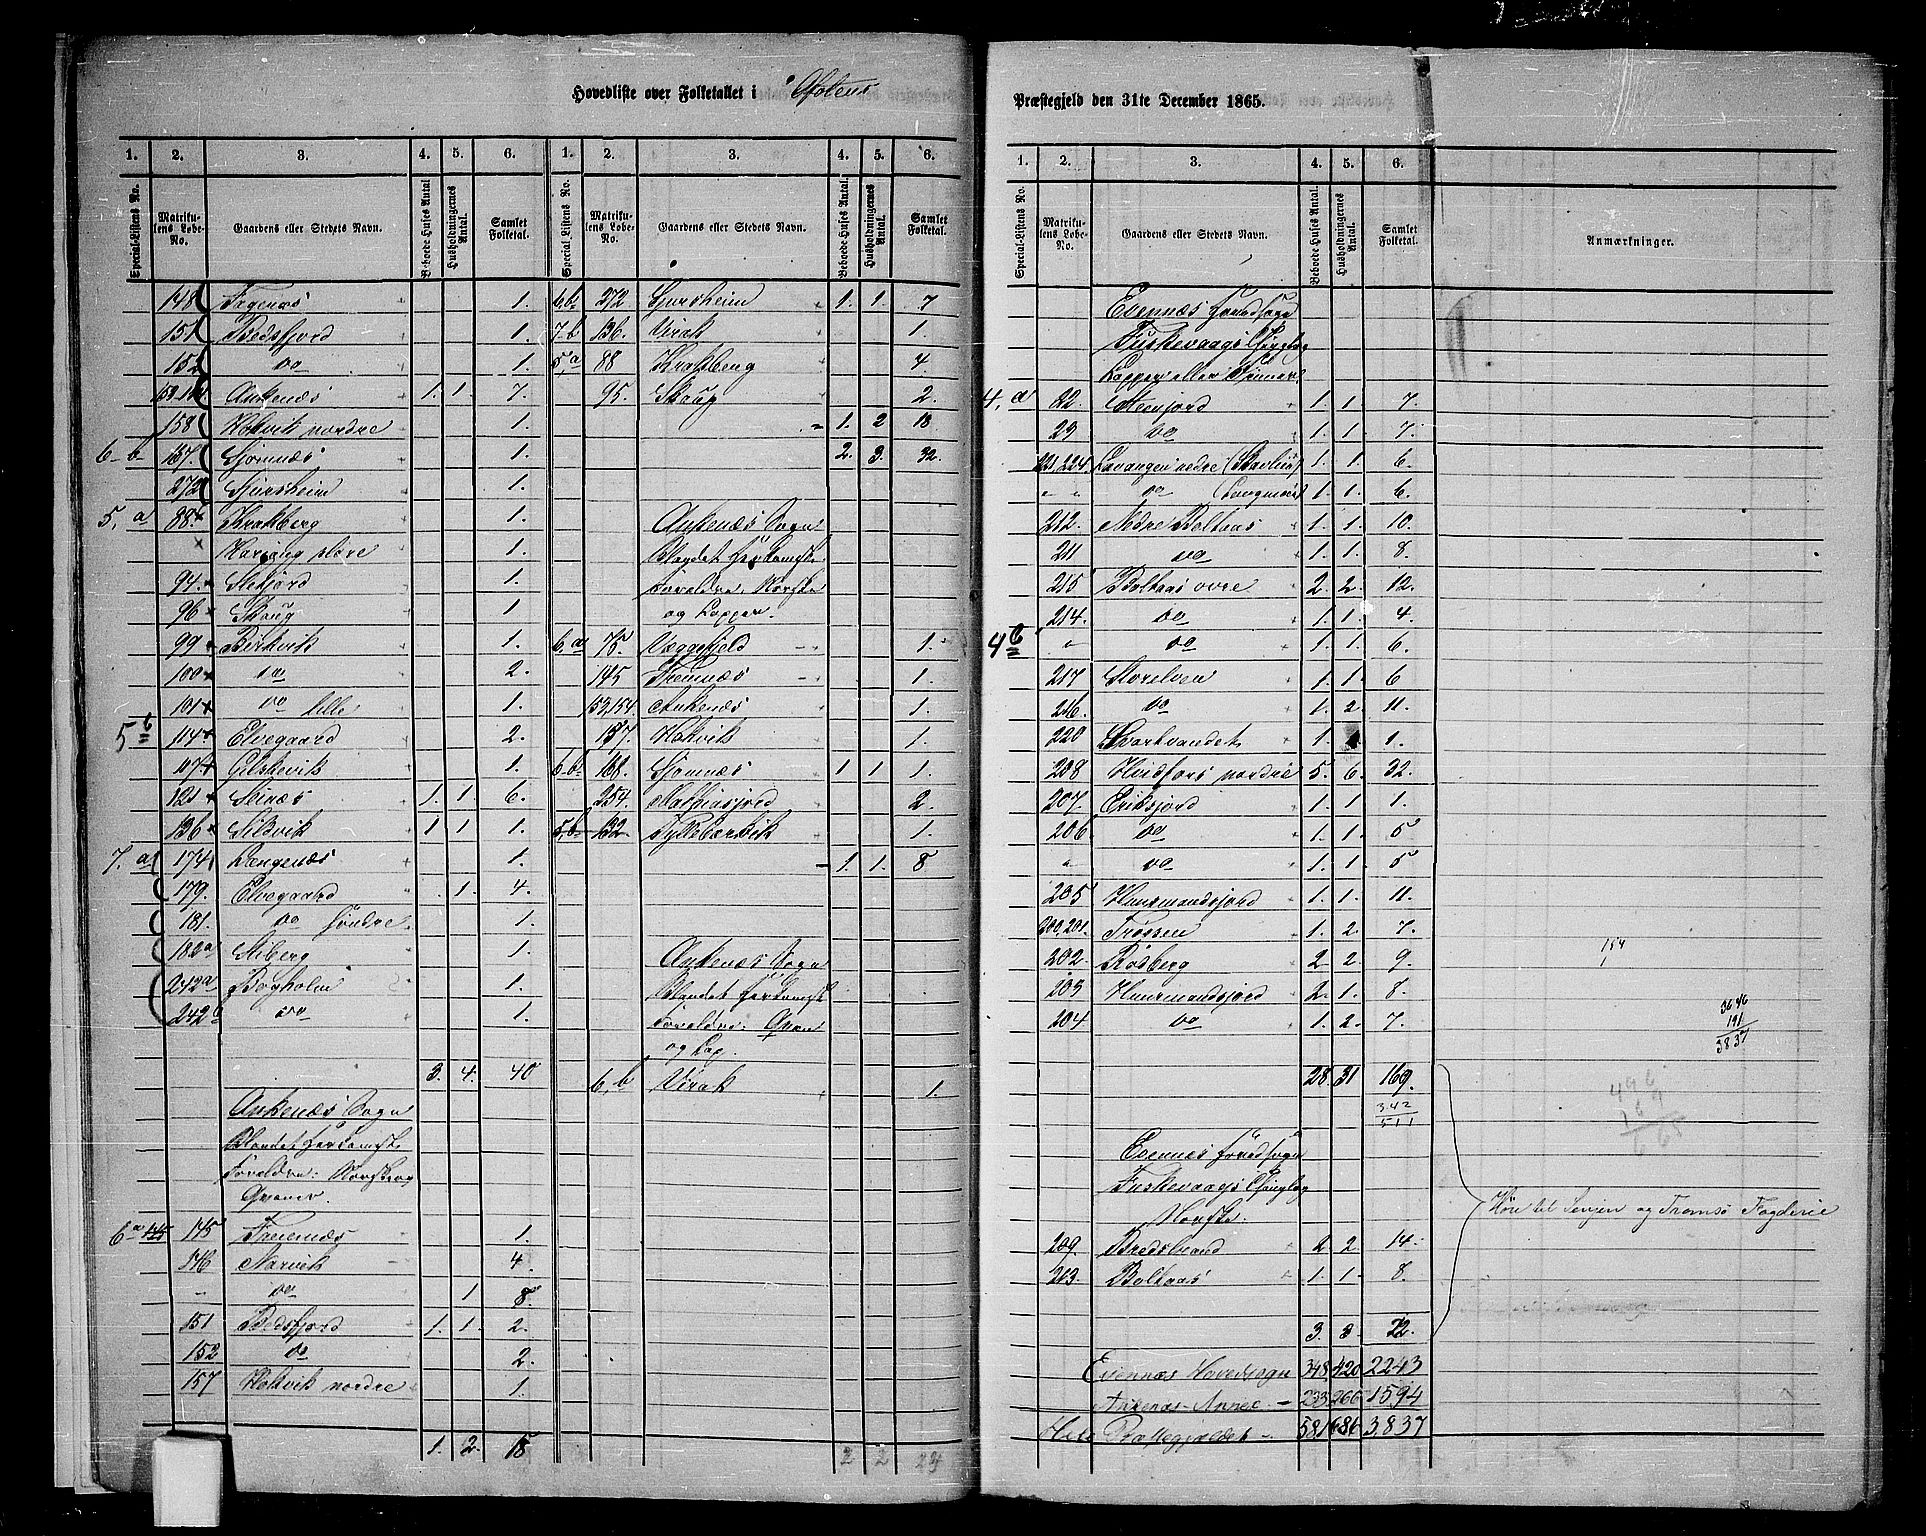 Hovedliste over Folketallet i Ofotens
Præstegjeld den 31te December 1865.
1. 2. 3. 4. 5. 6. 1. 2. 3. 4. 5. 6.
Special-Listens No. Matrikulens Løbe-No. Gaardens eller Stedets Navn. Beboede Huses Antal Husholdningernes Antal. Samlet Folketal. Special-Listens No. Matrikulens Løbe-No. Gaardens eller Stedets Navn. Beboede Huses Antal. Husholdningernes Antal. Samlet Folketal.
148 Fagernæs 1.
151 Bedsfjord 1.
152 do 1.
153,154 Ankenæs 1. 1. 7.
158 Hokvik nordre 1.
6-b 137. Sjomnæs 1.
272 Sjursheim 1.
5, a 88 Krakberg 1.
Harjang store 1.
94. Stefjord 1.
96 Skoug 1
99 Birkvik 1.
100 do 2.
101 do lille 1.
5 b 114 Elvegaard 2.
107 Gilshevik 1.
121 Seinæs 1. 1. 6.
136 Sildvik 1 1 1.
7. a 174 Længenæs 1.
179. Elvegaard 1. 4.
181. do søndre 1.
182a Stiberg 1.
242a Bogholm 1.
242b do 1.
3. 4. 40
Ankenæs Sogn
Blandet herkomst
Foreldre: Norske og
Qvæner.
6a 145 Fremnæs 1.
146 Narvik 4.
- do 1 8.
151 Bedsfjord 1. 1. 2.
152 do 2.
157 Hokvik nordre 1.
1. 2. 18
6b 272 Sjursheim 1. 1. 7
7-b 136. Virak 1.
5,a 88 Krakberg 4.
95. Skoug 2.
1. 2 18
2. 3. 32.
Ankenæs Sogn
Blandet herkomst
Foreldre, Norske
og Lapper.
6,a 78. Væggefjeld 1.
145 Fremnæs 1.
153,154. Ankenæs 1.
157 Hokvik 1.
6-b 168. Sjomnæs 1 1 1.
254. Mathiasjord 2.
5,b 132 Tyttebærvik 1.
1. 1. 8
Ankenæs Sogn
Blandet herkomst
Foreldre: Qvæn
og Lap.
6,b Virak 1.
2 2
1. 2. 3. 4. 5. 6.
Special-Listens No. Matrikulens Løbe-No. Gaardens eller Stedets Navn. Beboede Huses Antal. Husholdningernes Antal. Samlet Folketal. Anmærkninger.
Evennæs hovedsogn
Fuskevaags Thinglag
Lapper eller Finner
4, a 22. Steenjord 1. 1. 7.
29 do 1. 1. 7.
221,224. Lavangen nedre 1. 1. 6.
" " do 1. 1. 6.
212. Nedre Boltaas 1. 1. 10.
211 do 1. 1. 8.
215 Boltaas øvre 2. 2. 12.
214. do 1. 1. 4.
4b " do 1. 1. 6.
217 Storelven 1. 1. 6
216. do 1. 2. 11.
220 Svartvandet 1. 1.
208 Hvidfors nordre 5. 6. 32.
207. Eriksjord 1. 1. 1.
206 do 1. 1. 5
" do 1. 1. 5
205 Hansmandsjord 1. 1. 11.
200,201. Trossen 1. 2. 7.
202 Rødberg 2 2. 9.
203 Hansmandsjord 2. 1. 8.
204 do 1. 2. 7.
154
1
3646
191
3837
28 31 169.
342
511
Evennæs hovedsogn
Fuskevaags Thinglag
Norske.
209. Bredstrand 2. 2. 14.
213. Boltaas 1. 1. 8.
Høre til Senjen og Tromsø Fogderie
3. 3. 22.
Evennæs Hovedsogn 348 420 2243
Ankenæs Annex 233 266 1594
Hele Præstegjældet 581 686 3,837